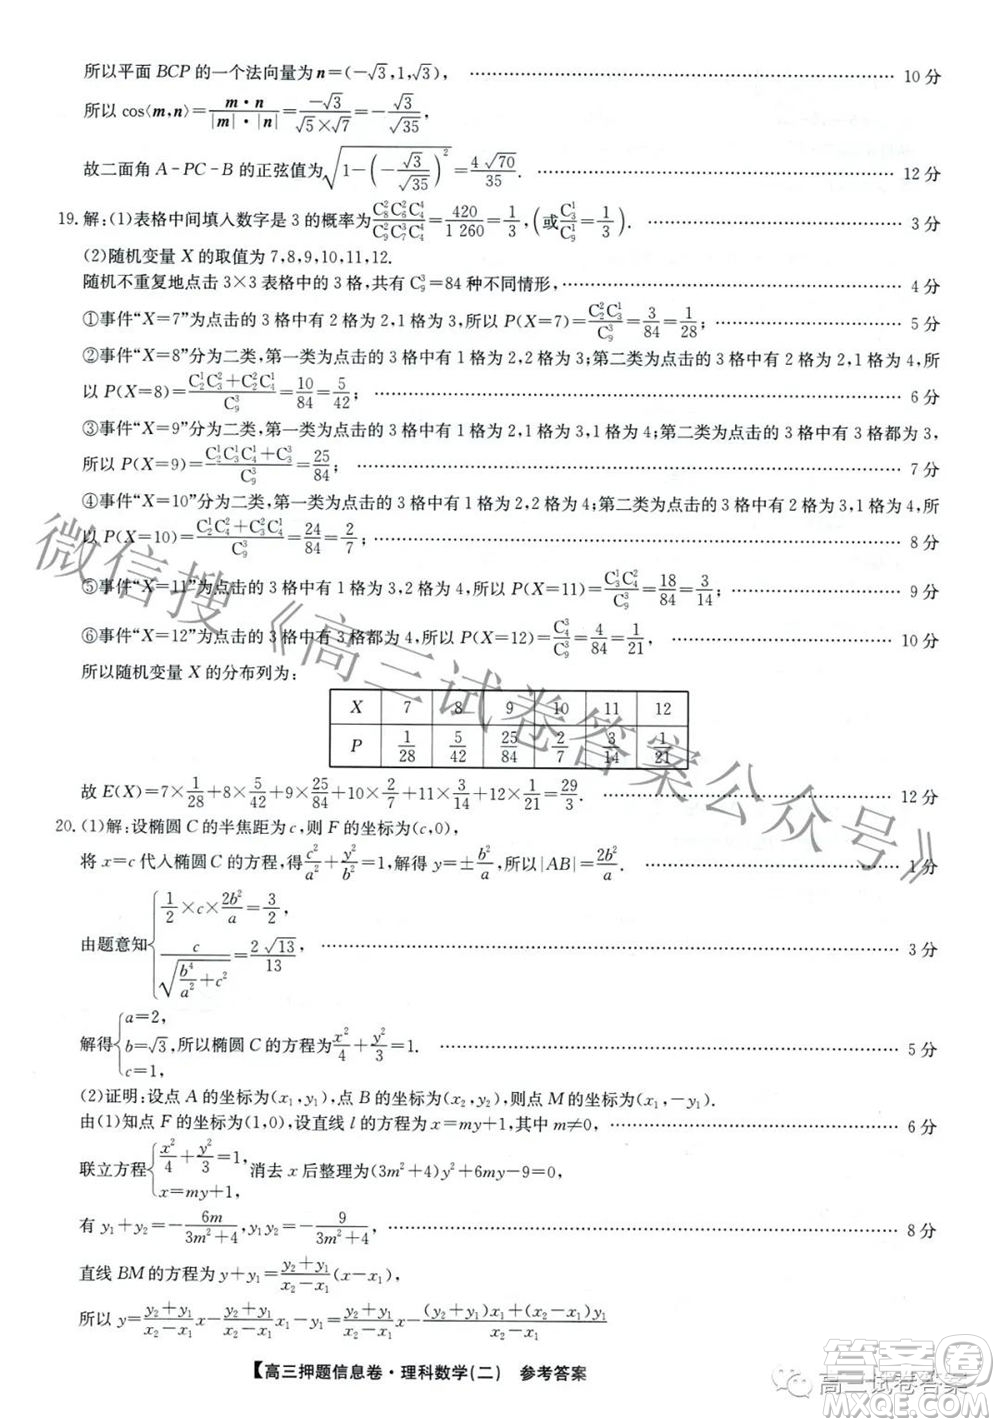 所以平面 BCP 的一个法向量为 n=(-√3,1,√3), …… 10 分
所以 cos⟨m,n⟩=m·n/(|m|·|n|)=-√3/(√5×√7)=-√3/√35,
故二面角 A-PC-B 的正弦值为√(1-(-√3/√35)²)=4√70/35. …… 12 分
19.解:(1)表格中间填入数字是 3 的概率为C₈²C₆²C₄⁴/(C₉²C₇³C₄⁴)=420/1 260=1/3,(或C₃¹/C₉¹=1/3). …… 3 分
(2)随机变量 X 的取值为 7,8,9,10,11,12.
随机不重复地点击 3×3 表格中的 3 格,共有 C₉³=84 种不同情形, …… 4 分
①事件“X=7”为点击的 3 格中有 2 格为 2,1 格为 3,所以 P(X=7)=C₂²C₃¹/C₉³=3/84=1/28; …… 5 分
②事件“X=8”分为二类,第一类为点击的 3 格中有 1 格为 2,2 格为 3;第二类为点击的 3 格中有 2 格为 2,1 格为 4,所
以 P(X=8)=(C₂¹C₃²+C₂²C₄¹)/C₉³=10/84=5/42; …… 6 分
③事件“X=9”分为二类,第一类为点击的 3 格中有 1 格为 2,1 格为 3,1 格为 4;第二类为点击的 3 格中有 3 格都为 3,
所以 P(X=9)=(C₂¹C₃¹C₄¹+C₃³)/C₉³=25/84; …… 7 分
④事件“X=10”分为二类,第一类为点击的 3 格中有 1 格为 2,2 格为 4;第二类为点击的 3 格中有 2 格为 3,1 格为 4,所
以 P(X=10)=(C₂¹C₄²+C₃²C₄¹)/C₉³=24/84=2/7; …… 8 分
⑤事件“X=11”为点击的 3 格中有 1 格为 3,2 格为 4,所以 P(X=11)=C₃¹C₄²/C₉³=18/84=3/14; …… 9 分
⑥事件“X=12”为点击的 3 格中有 3 格都为 4,所以 P(X=12)=C₄³/C₉³=4/84=1/21, …… 10 分
所以随机变量 X 的分布列为:
X 7 8 9 10 11 12
P 1/28 5/42 25/84 2/7 3/14 1/21
故 E(X)=7×1/28+8×5/42+9×25/84+10×2/7+11×3/14+12×1/21=29/3. …… 12 分
20.(1)解:设椭圆 C 的半焦距为 c,则 F 的坐标为(c,0),
将 x=c 代入椭圆 C 的方程,得c²/a²+y²/b²=1,解得 y=±b²/a,所以|AB|=2b²/a. …… 1 分
由题意知{1/2×c×2b²/a=3/2, c/√(b⁴/a²+c²)=2√13/13, …… 3 分
解得{a=2, b=√3, c=1, 所以椭圆 C 的方程为x²/4+y²/3=1. …… 5 分
(2)证明:设点 A 的坐标为(x₁,y₁),点 B 的坐标为(x₂,y₂),则点 M 的坐标为(x₁,-y₁).
由(1)知点 F 的坐标为(1,0),设直线 l 的方程为 x=my+1,其中 m≠0, …… 6 分
联立方程{x²/4+y²/3=1, x=my+1, 消去 x 后整理为(3m²+4)y²+6my-9=0,
有 y₁+y₂=-6m/(3m²+4),y₁y₂=-9/(3m²+4), …… 8 分
直线 BM 的方程为 y+y₁=(y₂+y₁)/(x₂-x₁)(x-x₁),
所以 y=(y₂+y₁)/(x₂-x₁)x-(y₂+y₁)/(x₂-x₁)x₁-y₁=(y₂+y₁)/(x₂-x₁)x-((y₂+y₁)x₁+(x₂-x₁)y₁)/(x₂-x₁)
【高三押题信息卷·理科数学(二) 参考答案
微信搜《高三试卷答案公众号》
高三试卷答案
答案圈
MXQE.COM